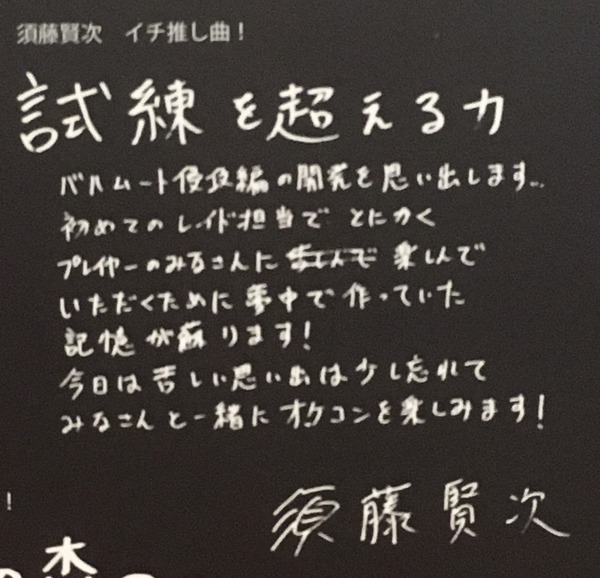 須藤賢次 イチ推し曲！
試練を超える力
バハムート侵攻編の開発を思い出します…
初めてのレイド担当でとにかく
プレイヤーのみなさんに楽しんで
いただくために夢中で作っていた
記憶が蘇ります！
今日は苦しい思い出は少し忘れて
みなさんと一緒にオケコンを楽しみます！
須藤賢次
！